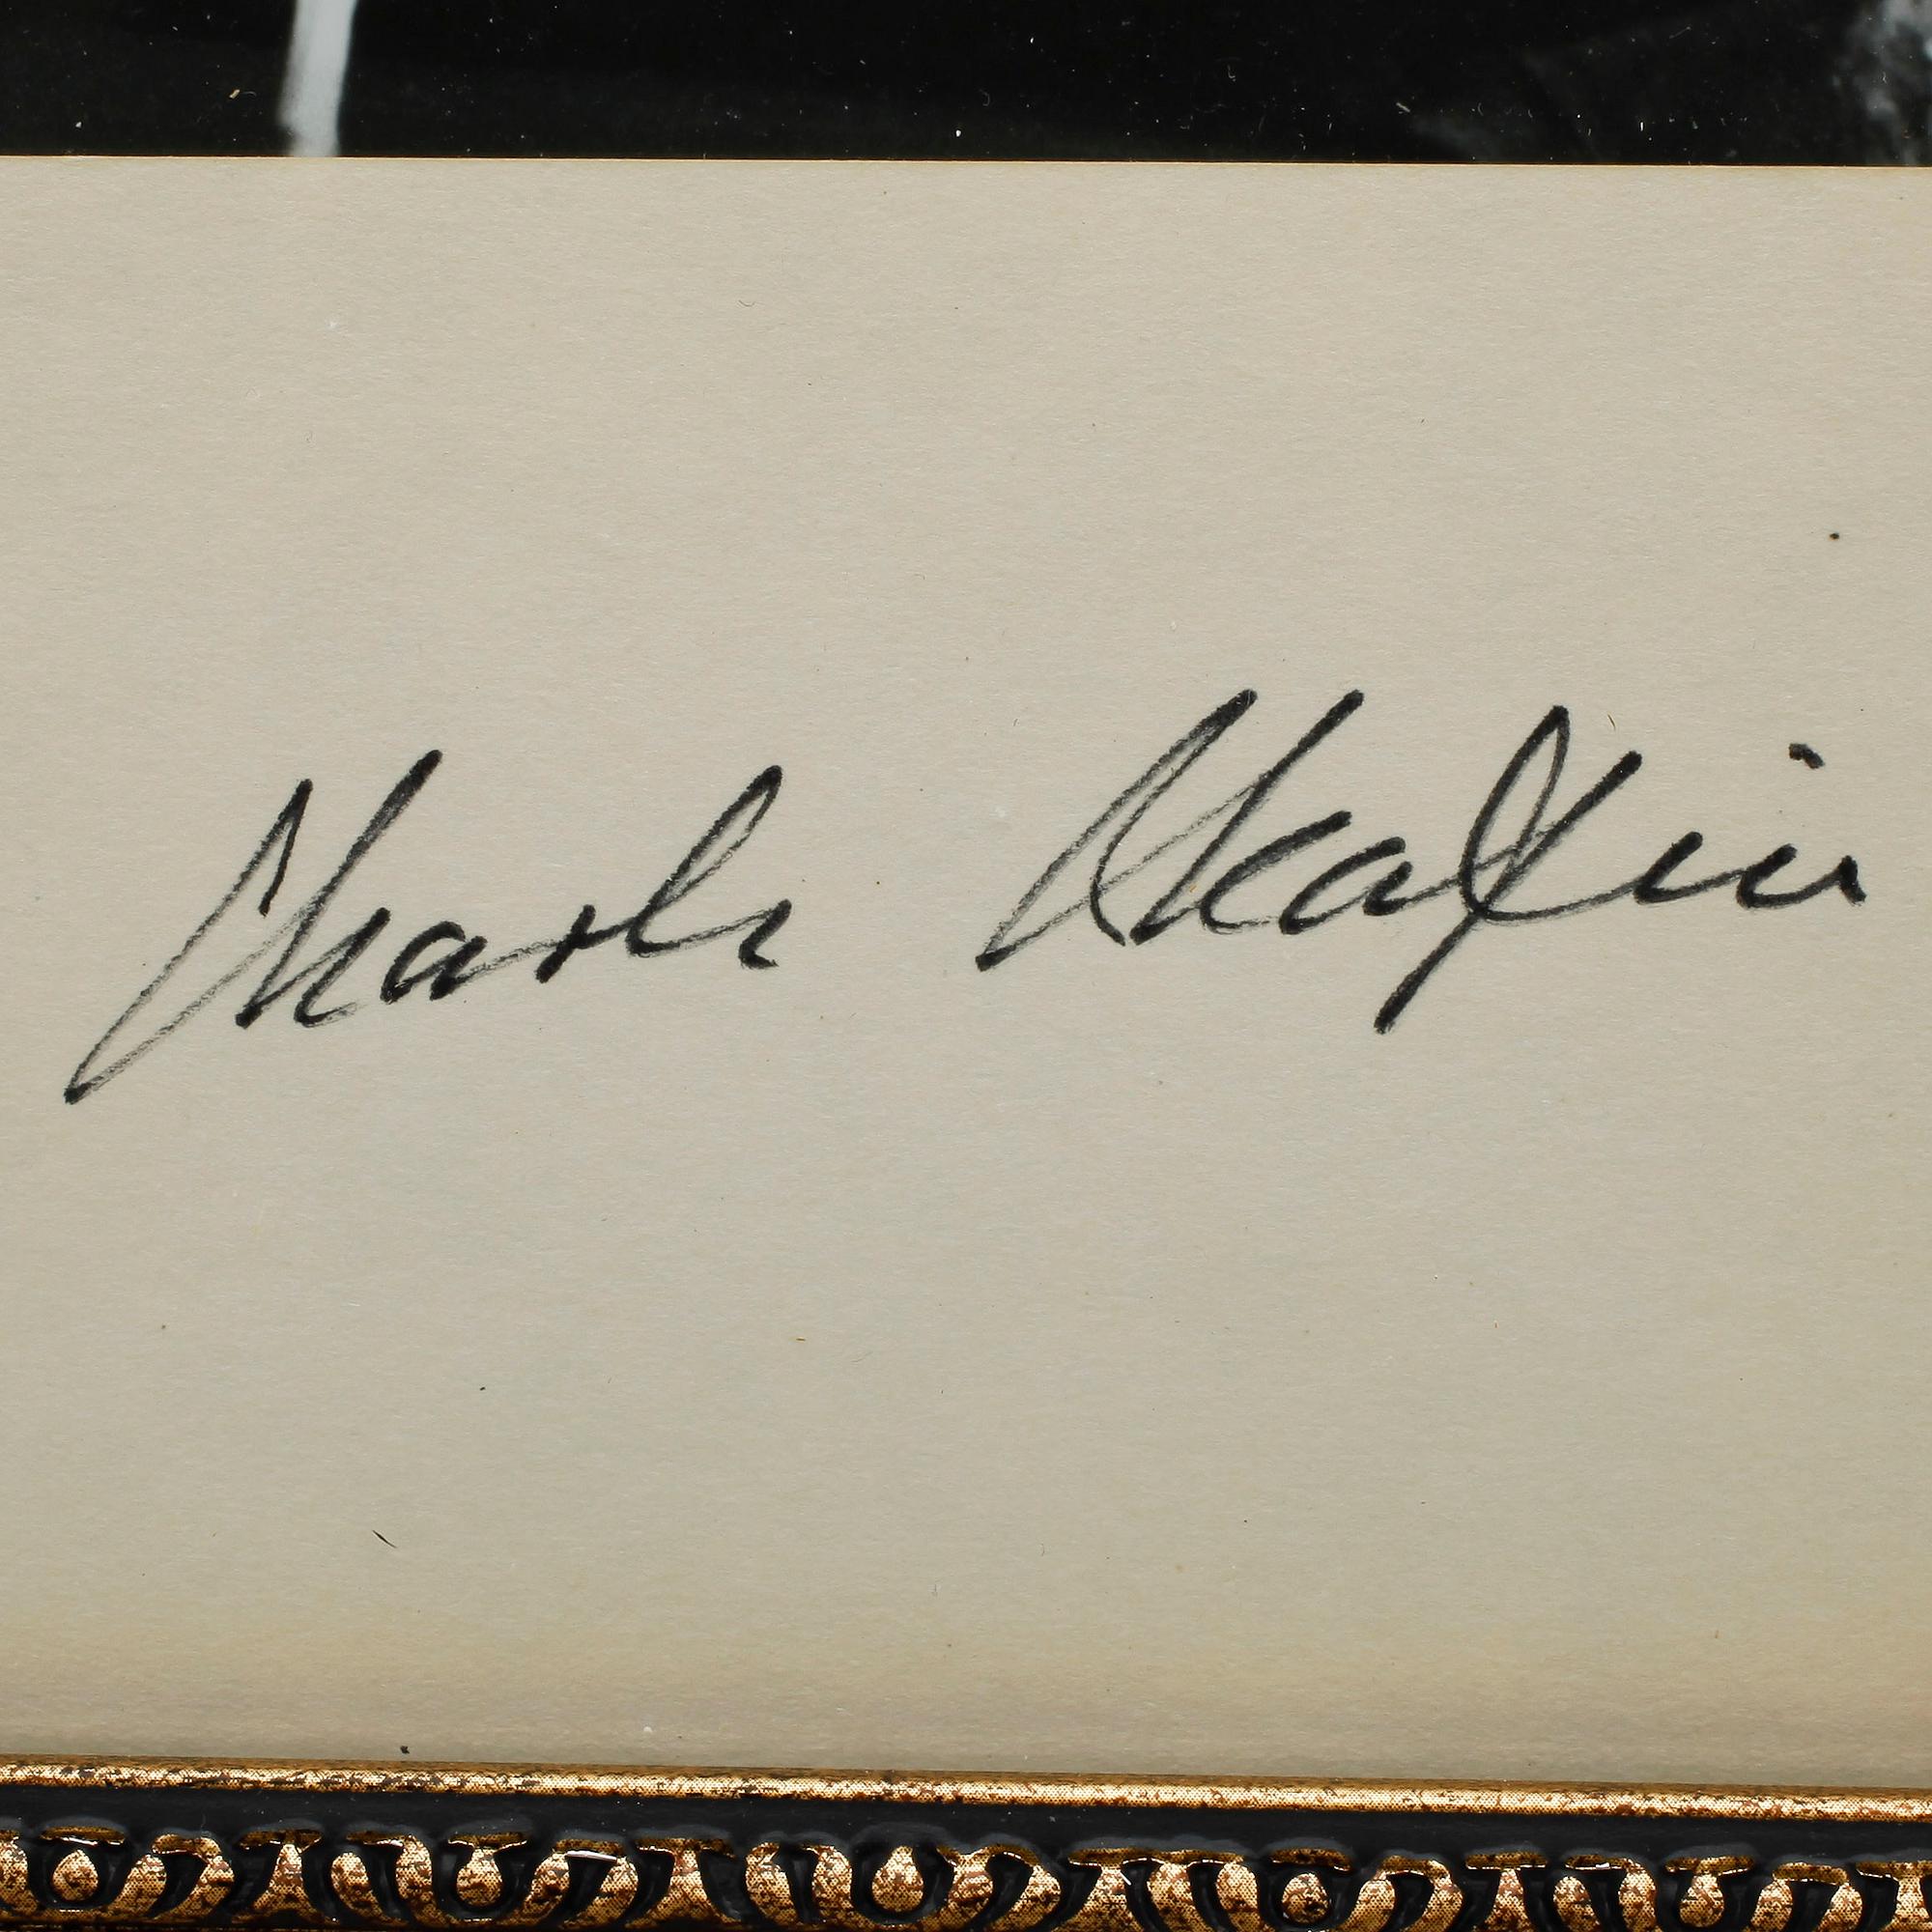 Charls Chaplin